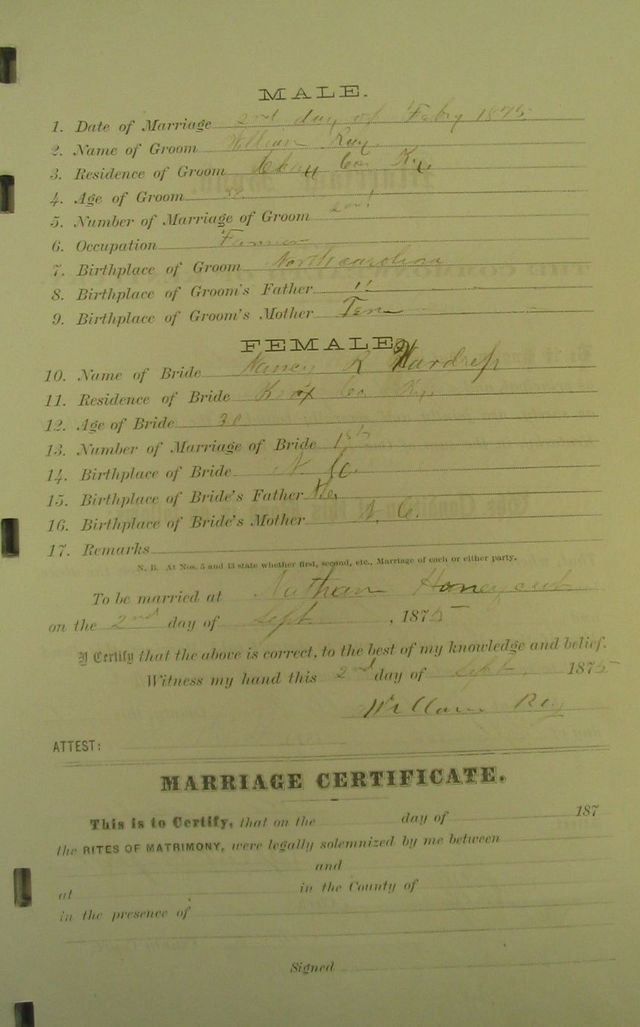 MALE.
1. Date of Marriage 2nd day of Febry 1875
2. Name of Groom William Ray
3. Residence of Groom Co. Ky.
4. Age of Groom
5. Number of Marriage of Groom
6. Occupation Farmer
7. Birthplace of Groom North carolina
8. Birthplace of Groom's Father "
9. Birthplace of Groom's Mother Ten
FEMALE.
10. Name of Bride Nancy
11. Residence of Bride Knox Co. Ky.
12. Age of Bride 30
13. Number of Marriage of Bride 1st
14. Birthplace of Bride N. C.
15. Birthplace of Bride's Father
16. Birthplace of Bride's Mother N. C.
17. Remarks
N. B. At Nos. 5 and 13 state whether first, second, etc., Marriage of each or either party.
To be married at Nathan Honeycut
on the 2nd day of Sept, 1875
I Certify that the above is correct, to the best of my knowledge and belief.
Witness my hand this 2nd day of Sept. 1875
William Ray
ATTEST:
MARRIAGE CERTIFICATE.
This is to Certify, that on the day of 187
the RITES OF MATRIMONY, were legally solemnized by me between
and
at in the County of
in the presence of
Signed